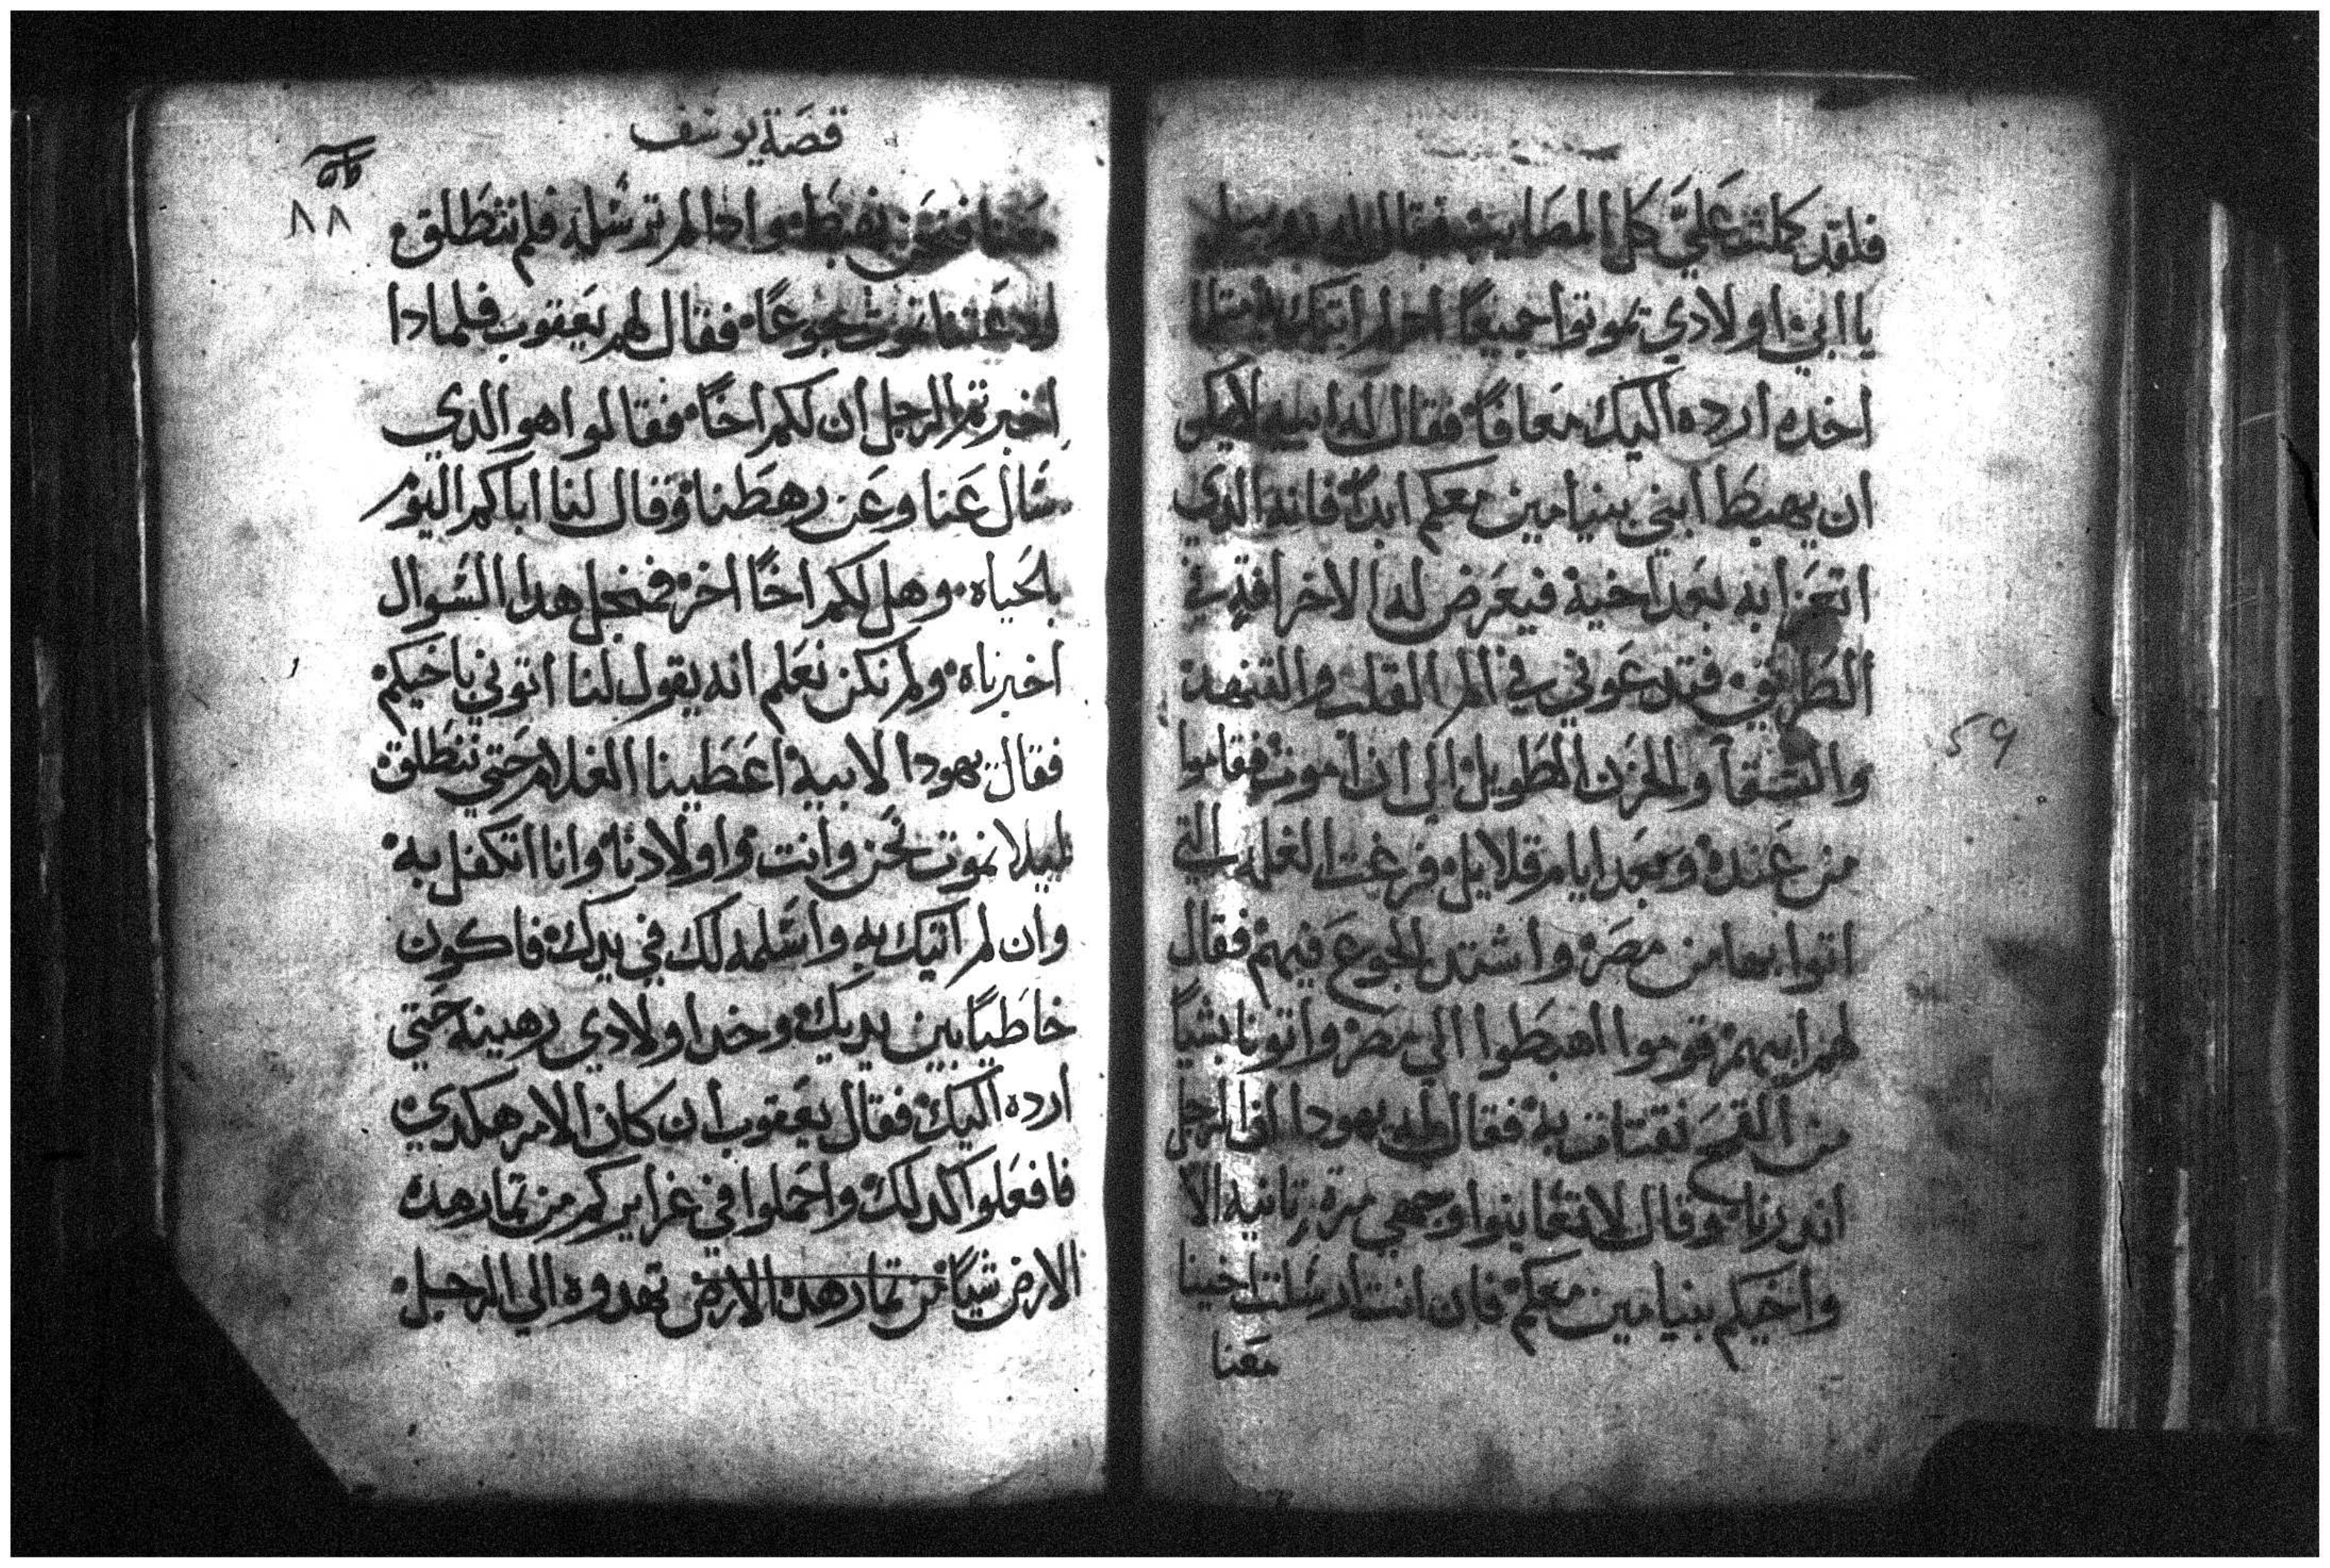 فلقد كملت عليَّ كل المصايب فقال له روبيل
يا ابي اولادي تموتوا جميعاً ان لم اتيك به متلما
اخده ارده اليك معافاً فقال له ابيه لا يمكن
ان يهبط ابني بنيامين معكم ابداً فانه الدي
اتعزا به بعد اخيه فيعرض له الاخر افة في
الطريق فتدعوني في الم القلب والتنهد
والشقا والحزن الطويل الي ان اموت فقاموا
من عنده وبعد ايام قلايل فرغت الغله التي
اتوا بها من مصر واشتد الجوع فيهم فقال
لهم ابيهم قوموا اهبطوا الي مصر واتونا بشياً
من القمح نقتات به فقال له يهودا ان الرجل
اندرنا وقال لا تعاينوا وجهي مرة تانيه الا
واخيكم بنيامين معكم فان انت ارسلت اخينا
معنا
٥٩
قصة يوسف
٨٨
معنا فنحن نهبط وادا لم ترسله فلم ننطلق
لو متنا نموت بجوعاً فقال لهم يعقوب فلمادا
اخبرتم الرجل ان لكم اخاً فقالوا هو الدي
سال عنا وعن رهطنا وقال لنا اباكم اليوم
بالحياه وهل لكم اخاً اخر فمن اجل هدا السوال
اخبرناه ولم نكن نعلم انه يقول لنا اتوني باخيكم
فقال يهودا لابيه اعطينا الغلام حتي ننطلق
ليلا نموت نحن وانت واولادنا وانا اتكفل به
وان لم اتيك به واسلمه لك في يدك فاكون
خاطياً بين يديك وخد اولادي رهينه حتي
ارده اليك فقال يعقوب ان كان الامر هكدي
فافعلوا كدلك واحملوا في غرايركم من تمار هده
الارض شياً من تمار هده الارض تهدوه الي الرجل